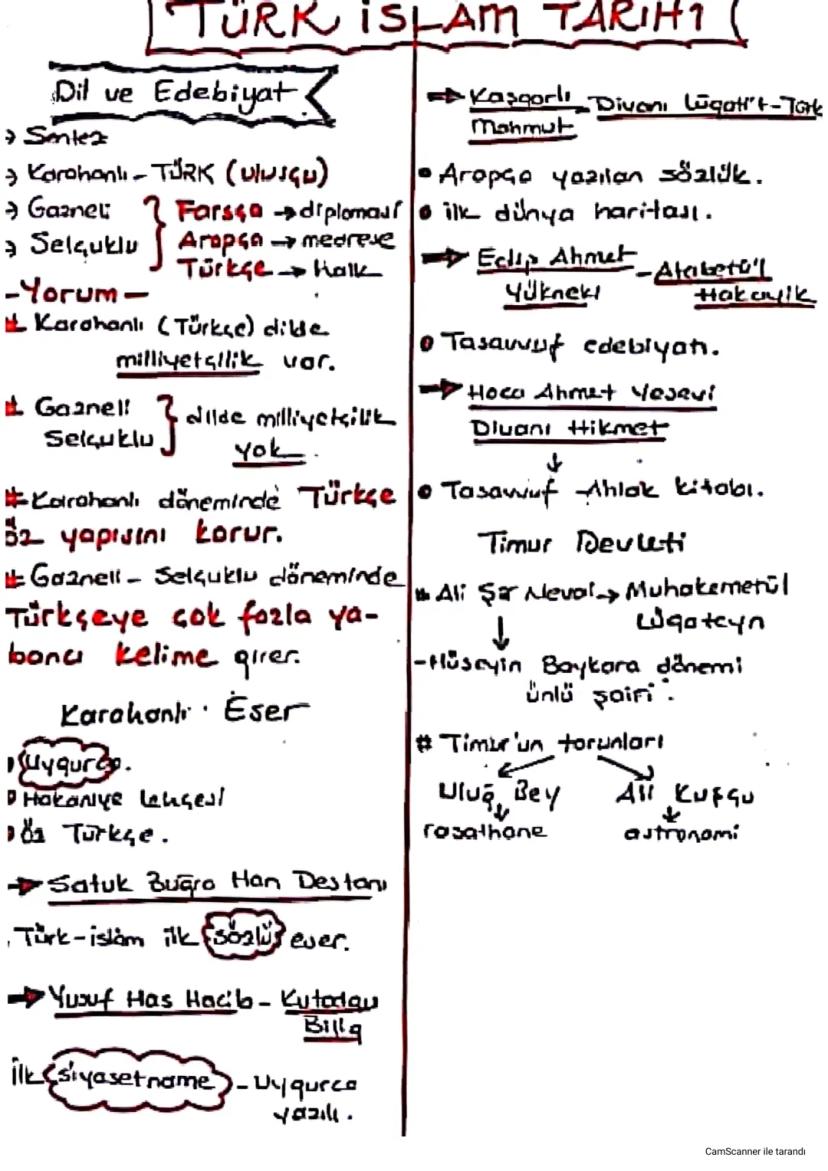 TÜRK İSLAM TARİHİ
Dil ve Edebiyat
→ Sentez
→ Karahanlı - TÜRK (Ulusçu)
→ Gazneli
→ Selçuklu
Farsça → diplomasi
Arapça → medrese
Türkçe → Halk
-Yorum-
# Karahanlı (Türkçe) dilde
milliyetçilik var.
# Gazneli
Selçuklu
dilde milliyetçilik
yok.
# Karahanlı döneminde Türkçe
öz yapısını korur.
# Gazneli - Selçuklu döneminde
Türkçeye çok fazla ya-
bancı kelime girer.
Karahanlı Eser
Uygurca.
Hakaniye Lehçesi
Öz Türkçe.
→ Satuk Buğra Han Destanı
. Türk-islâm ilk sözlü eser.
→ Yusuf Has Hacib - Kutadgu
Bilig
İlk siyasetname - Uygurca
yazılı.
→ Kaşgarlı
Mahmut
- Divanı Lügati't-Türk
• Arapça yazılan sözlük.
• ilk dünya haritası.
→ Edip Ahmet
Yükneki
- Atabetü'l
Hakayik
• Tasavvuf edebiyatı.
→ Hoca Ahmet Yesevi
Divanı Hikmet
↓
• Tasavvuf - Ahlak kitabı.
Timur Devleti
# Ali Şir Nevai → Muhakemetül
Lügateyn
↓
- Hüseyin Baykara dönemi
ünlü şairi.
# Timur'un torunları
Uluğ Bey
Ali Kuşçu
rasathane
astronomi
CamScanner ile tarandı